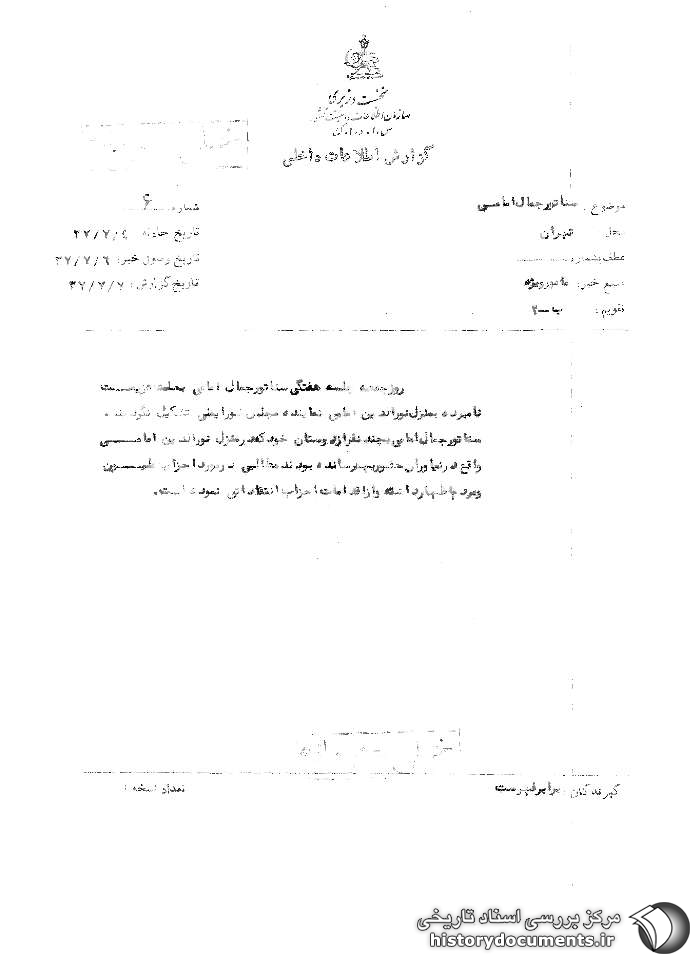 نخست وزیری
سازمان اطلاعات و امنیت کشور
س.ا.و.ا.ک
گزارش اطلاعات داخلی
موضوع: سناتور جمال امامی
شماره ۶
محل: تهران
تاریخ حادثه ۳۷/۷/۴
عطف بشماره
تاریخ وصول خبر: ۳۷/۷/۶
منبع خبر: مامور ویژه
تاریخ گزارش: ۳۷/۷/۷
تقویم: ب-۲
روز جمعه جلسه هفتگی سناتور جمال امامی بعلت عزیمت
نامبرده بمنزل نورالدین امامی نماینده مجلس شورایملی تشکیل نگردید.
سناتور جمال امامی بچند نفر از دوستان خود که در منزل نورالدین امامی
واقع در نیاوران حضور بهم رسانده بودند مطالبی در مورد احزاب ملیون
و مردم اظهار داشته و از اقدامات احزاب انتقاداتی نموده است.
گیرندگان: برابر فهرست
تعداد نسخه
مرکز بررسی اسناد تاریخی
historydocuments.ir